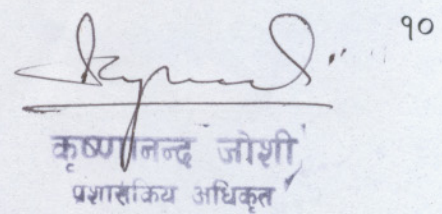 १०
कृष्णानन्द जोशी
प्रशासकिय अधिकृत